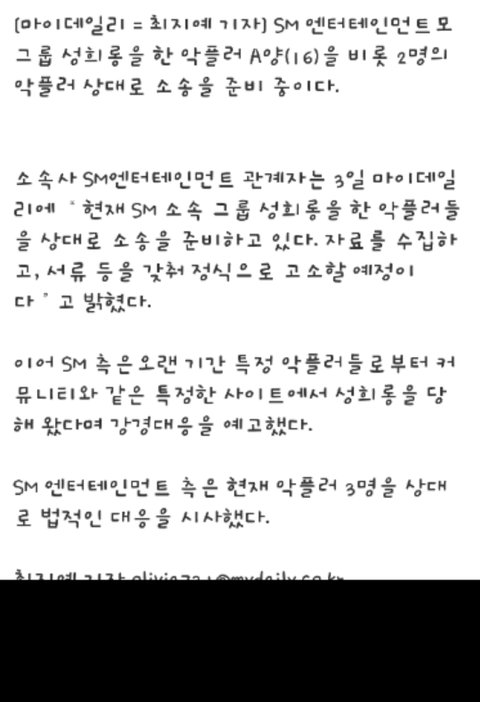 (마이데일리 = 최지예 기자) SM 엔터테인먼트 모
그룹 성희롱을 한 악플러 A양(16)을 비롯 2명의
악플러 상대로 소송을 준비 중이다.
소속사 SM엔터테인먼트 관계자는 3일 마이데일
리에 "현재 SM 소속 그룹 성희롱을 한 악플러들
을 상대로 소송을 준비하고 있다. 자료를 수집하
고, 서류 등을 갖춰 정식으로 고소할 예정이
다" 고 밝혔다.
이어 SM 측은 오랜 기간 특정 악플러들로부터 커
뮤니티와 같은 특정한 사이트에서 성희롱을 당
해 왔다며 강경대응을 예고했다.
SM 엔터테인먼트 측은 현재 악플러 3명을 상대
로 법적인 대응을 시사했다.
최지예 기자